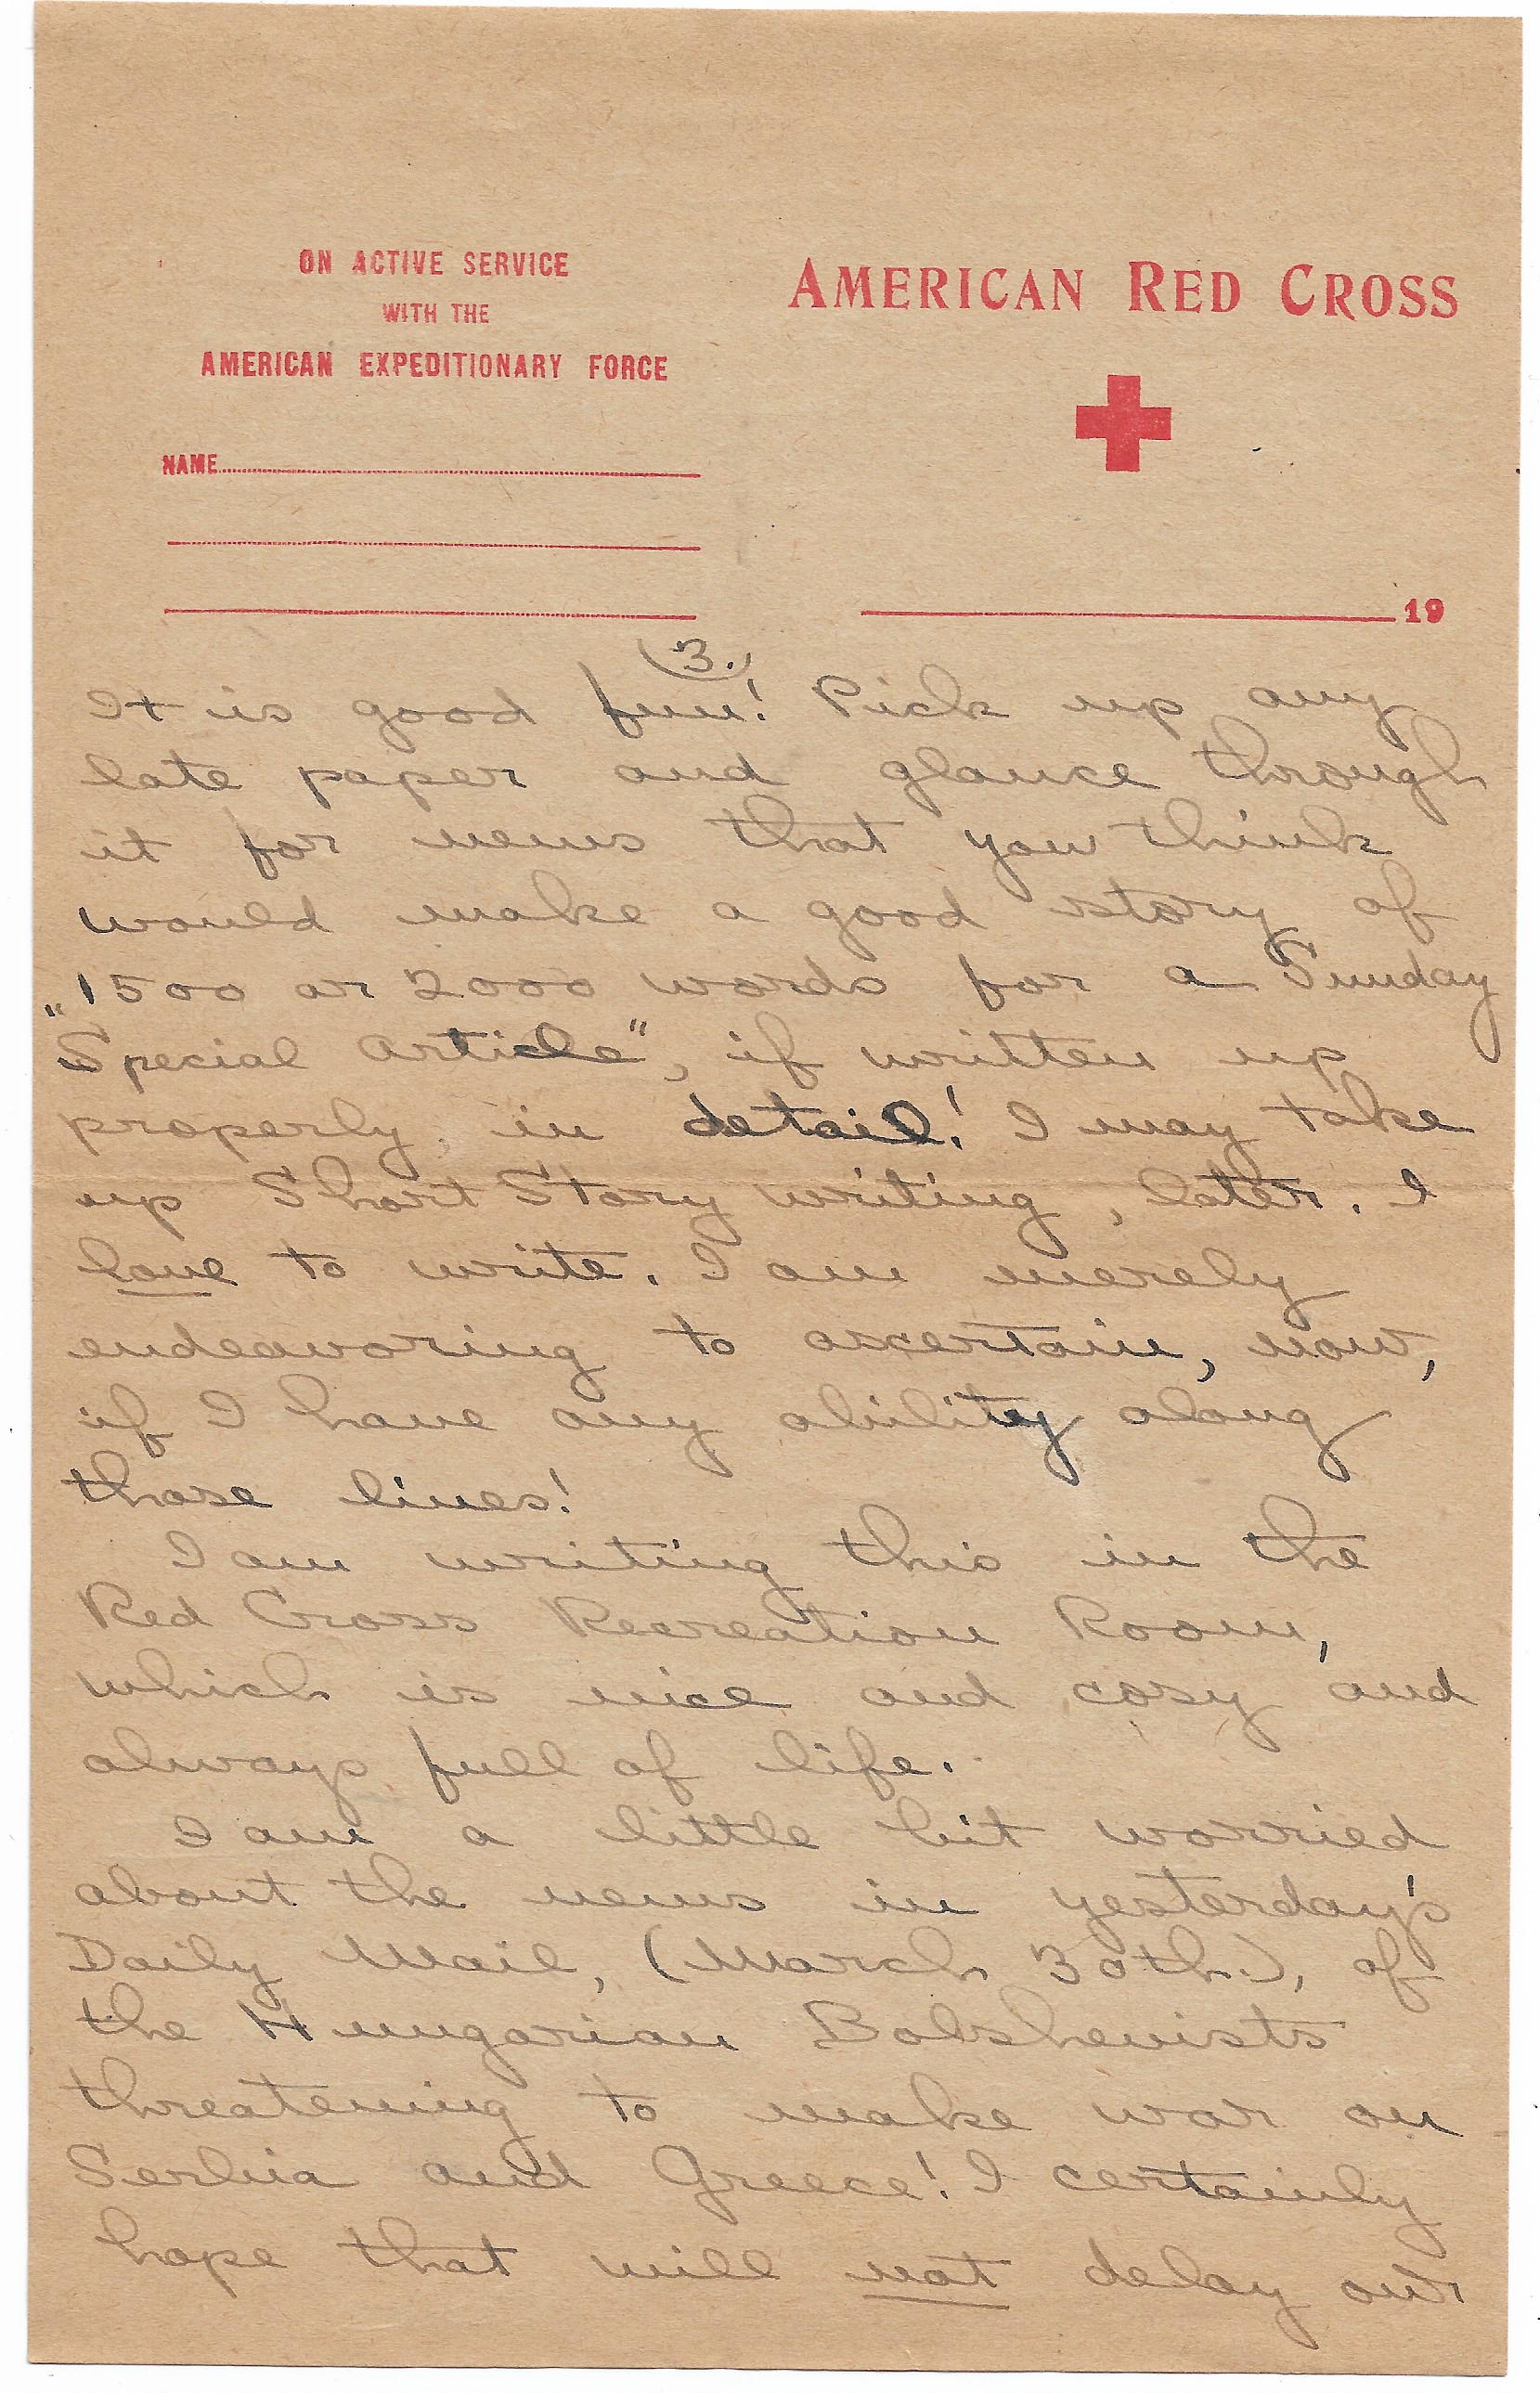 ON ACTIVE SERVICE
WITH THE
AMERICAN EXPEDITIONARY FORCE
NAME
AMERICAN RED CROSS
19
(3.)
It is good fun! Pick up any
late paper and glance through
it for news that you think
would make a good story of
1500 or 2000 words for a Sunday
"Special Article", if written up
properly, in detail! I may take
up Short Story writing, later. I
love to write. I am merely
endeavoring to ascertain, now,
if I have any ability along
those lines!
I am writing this in the
Red Cross Recreation Room,
which is nice and cosy and
always full of life.
I am a little bit worried
about the news in yesterday's
Daily Mail, (March 30th.), of
the Hungarian Bolshevists
threatening to make war on
Serbia and Greece! I certainly
hope that will not delay our